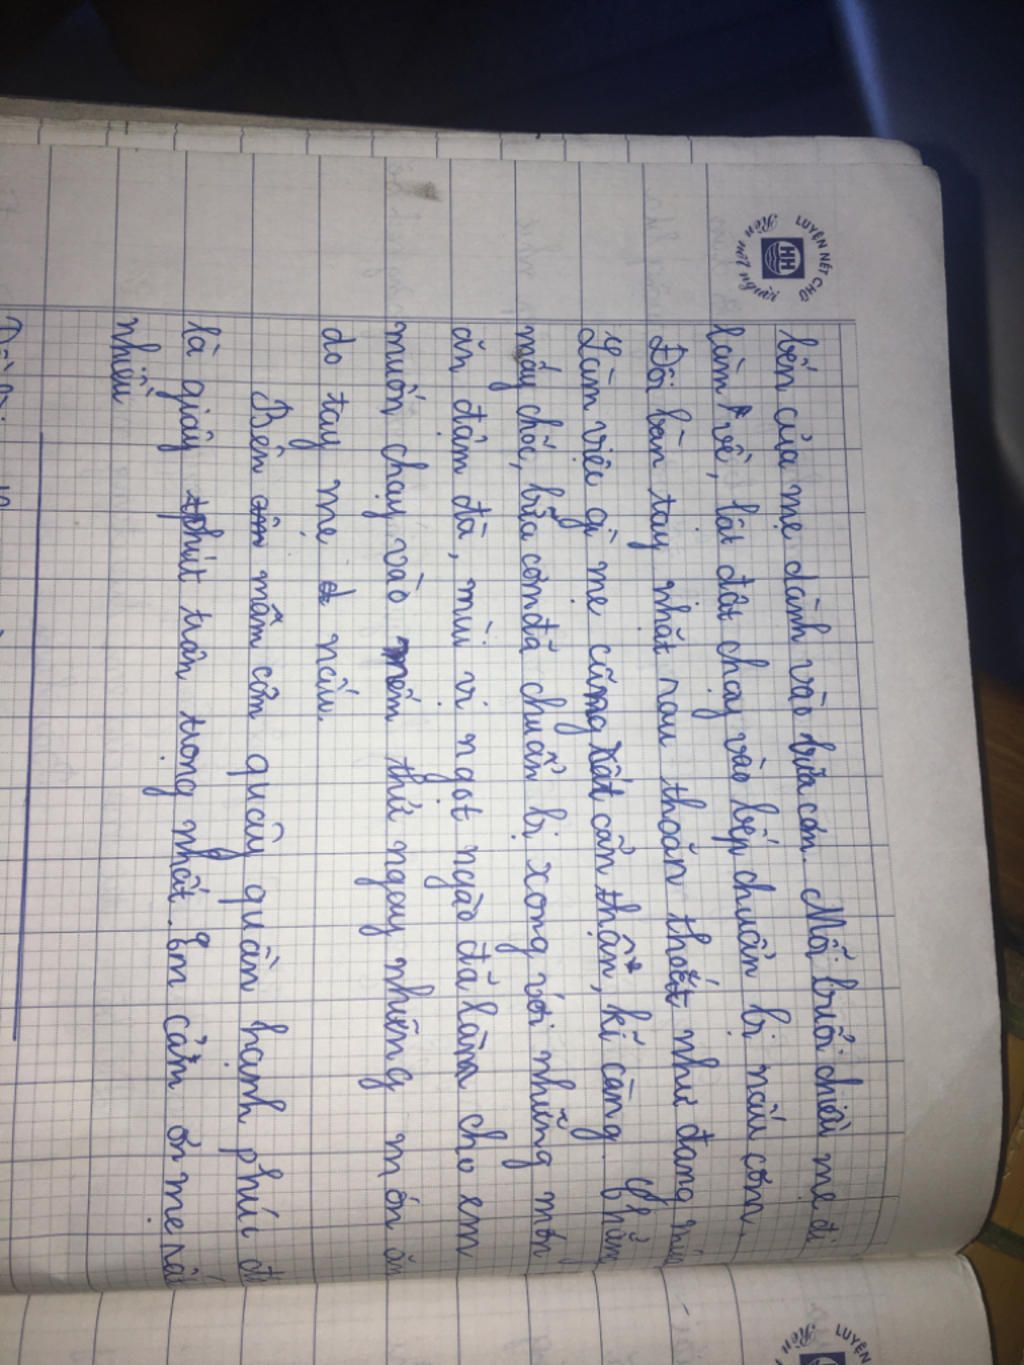 LUYỆN NÉT CHỮ
HH
Rèn nết người
bếp của mẹ dành vào bữa cơm. Mỗi buổi chiều mẹ đi
làm về, tất bật chạy vào bếp chuẩn bị nấu cơm.
Đôi bàn tay nhặt rau thoăn thoắt như đang múa
Làm việc gì mẹ cũng rất cẩn thận, kĩ càng.
mấy chốc, bữa cơm đã chuẩn bị xong với những món
ăn đậm đà, mùi vị ngọt ngào đã làm cho em
muốn chạy vào nếm thử ngay những món ăn
do tay mẹ nấu.
Bên mâm cơm quây quần hạnh phúc
là giây phút trân trọng nhất. Em cảm ơn mẹ rất
nhiều
LUYỆN
Rèn